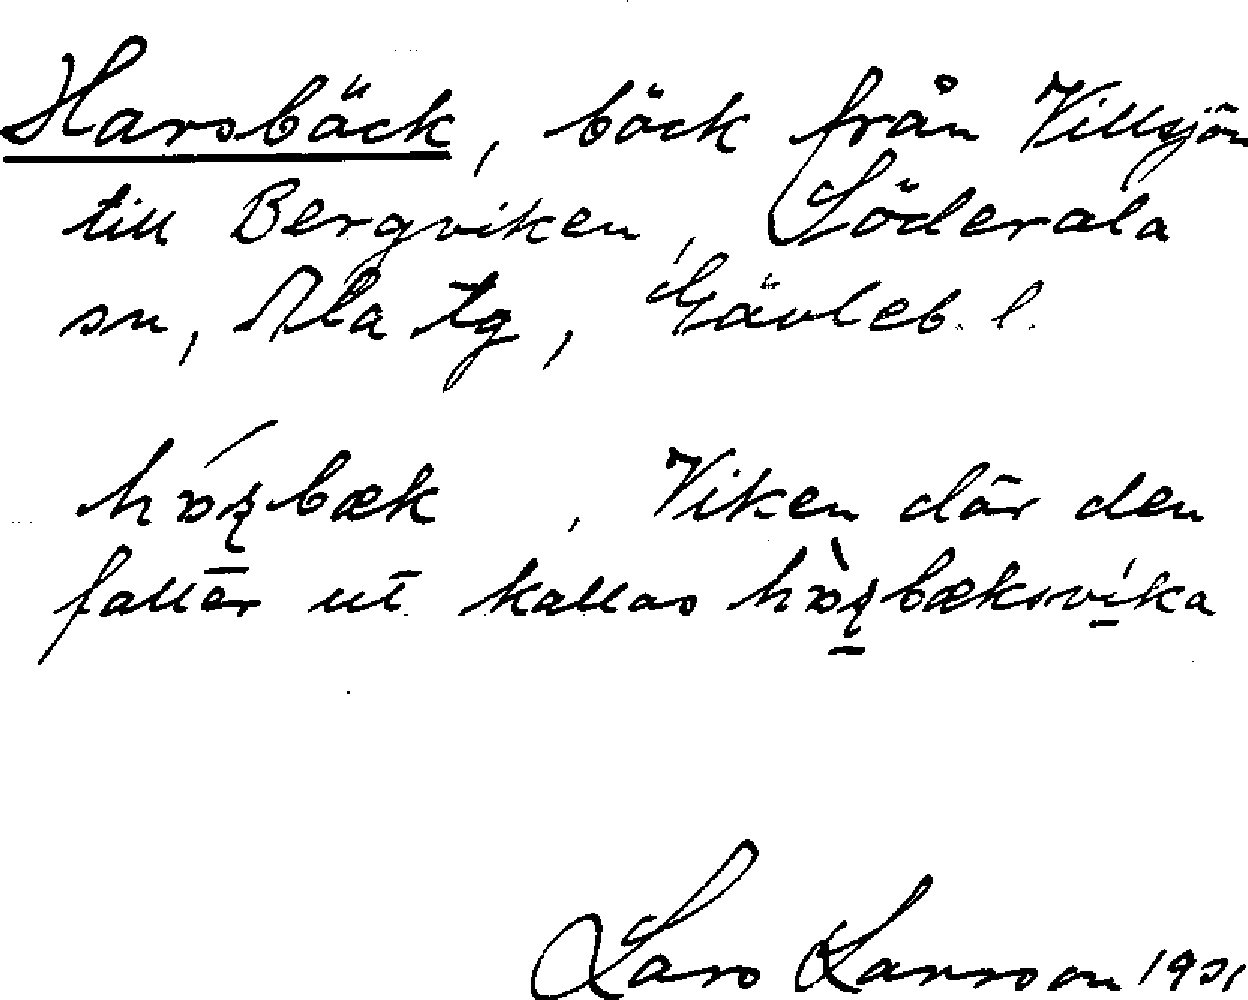 Harsbäck, bäck från Villsjön
till Bergviken, Söderala
sn, Ala tg, Gävleb. l.
Viken där den
faller ut kallas
Lars Larsson